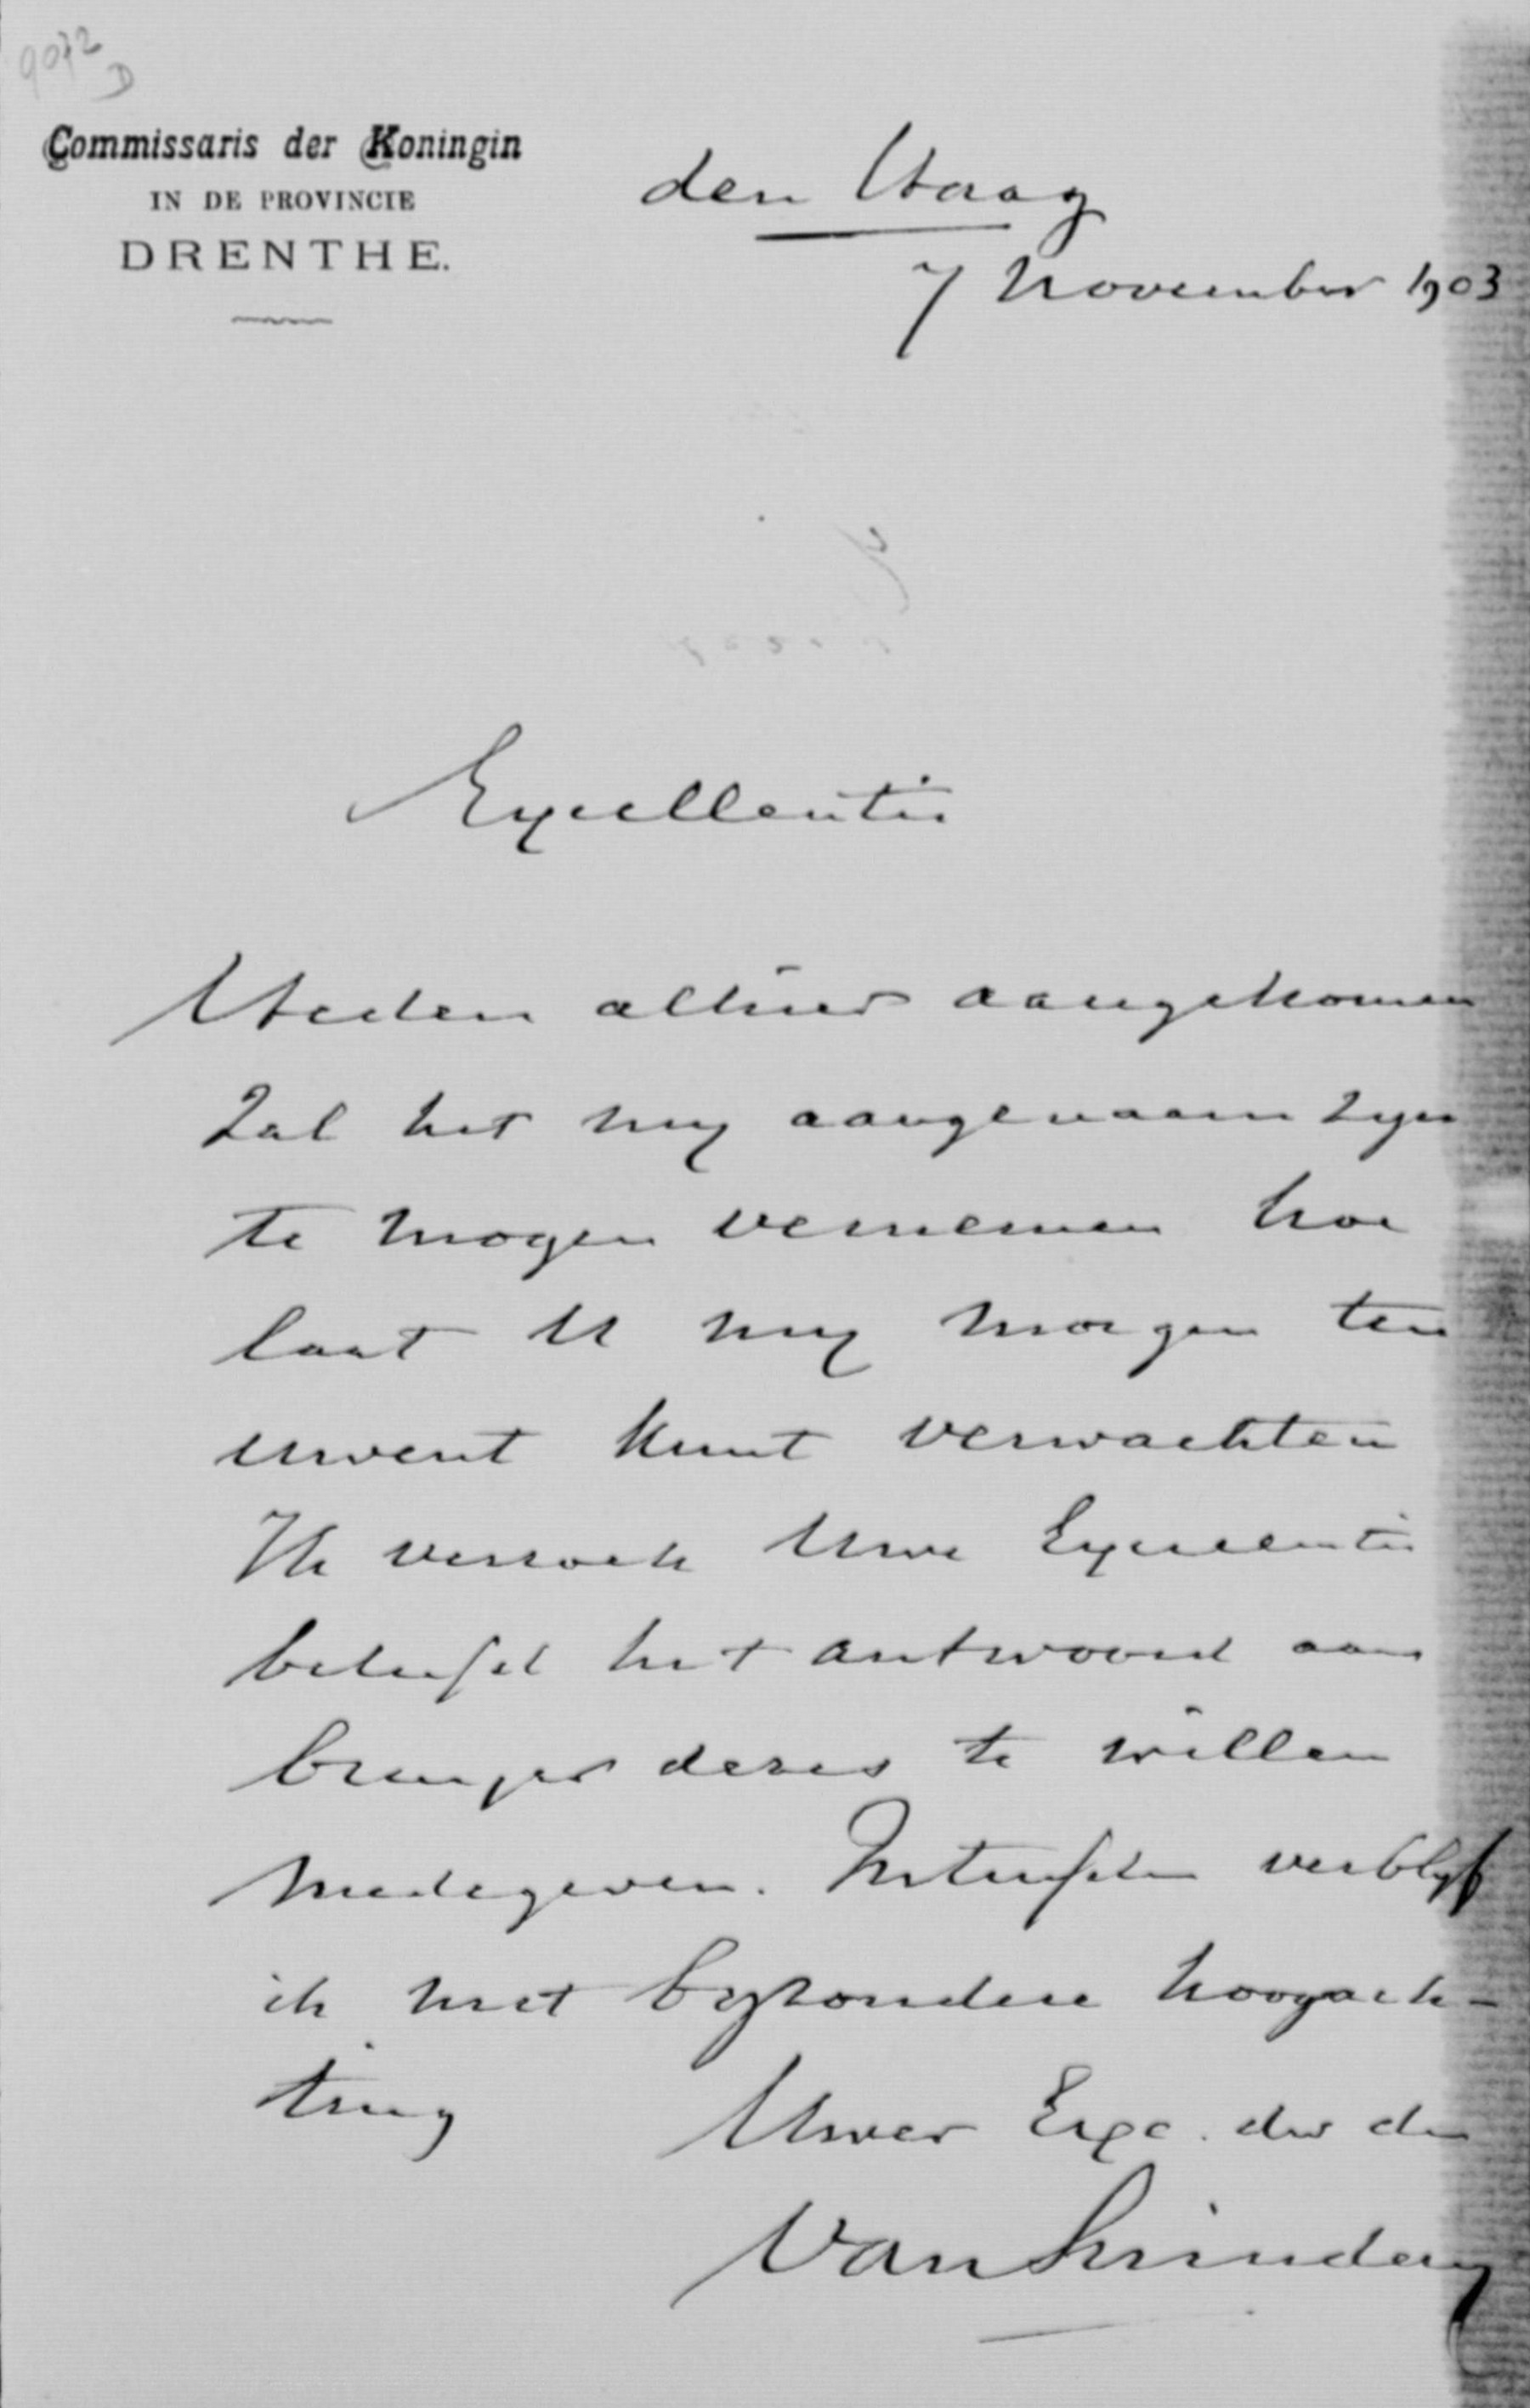 9072
D
Commissaris der Koningin
IN DE PROVINCIE
DRENTHE.
den Haag
7 November 1903
Excellentie
Heden alhier aangekomen
zal het my aangenaam zyn
te mogen vernemen hoe
laat U my morgen ten
uwent kunt verwachten
Ik verzoek Uwe Excellentie
beleefd het antwoord aan
brenger dezes te willen
medegeven. Intusschen verblyf
ik met byzondere hoogach-
ting
Uwer Exc. dw dn
Van Swinderen